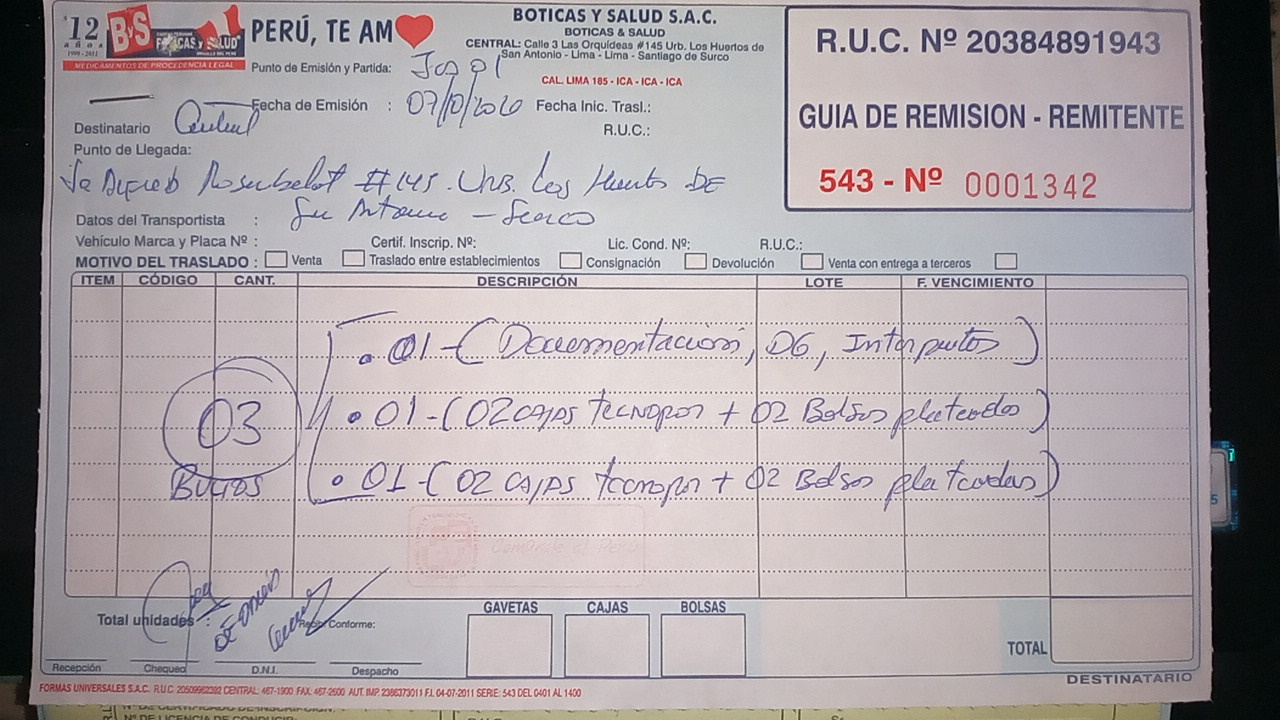 12
años
1999 - 2011
B&S
BOTICAS Y SALUD
MEDICAMENTOS DE PROCEDENCIA LEGAL
PERÚ, TE AM
BOTICAS Y SALUD S.A.C.
BOTICAS & SALUD
CENTRAL: Calle 3 Las Orquídeas #145 Urb. Los Huertos de
San Antonio - Lima - Lima - Santiago de Surco
CAL. LIMA 185 - ICA - ICA - ICA
R.U.C. Nº 20384891943
GUIA DE REMISION - REMITENTE
543 - Nº 0001342
Punto de Emisión y Partida:
Fecha de Emisión : 07/10/2020 Fecha Inic. Trasl.:
Destinatario Central R.U.C.:
Punto de Llegada:
#145. Urb. Los Huertos DE
San Antonio - Surco
Datos del Transportista :
Vehículo Marca y Placa Nº : Certif. Inscrip. Nº: Lic. Cond. Nº: R.U.C.:
MOTIVO DEL TRASLADO : Venta Traslado entre establecimientos Consignación Devolución Venta con entrega a terceros
ITEM CÓDIGO CANT. DESCRIPCIÓN LOTE F. VENCIMIENTO
. 01 - ( Documentación, DG, )
03 . 01 - ( 02 CAJAS Tecnopor + 02 Bolsas plateadas )
Bultos . 01 - ( 02 CAJAS tecnopor + 02 Bolsas plateadas )
Total unidades : Recibí Conforme:
GAVETAS CAJAS BOLSAS
TOTAL
Recepción Chequeo D.N.I. Despacho
DESTINATARIO
FORMAS UNIVERSALES S.A.C. R.U.C. 20509962392 CENTRAL: 467-1900 FAX: 467-2600 AUT. IMP. 2386373011 F.I. 04-07-2011 SERIE: 543 DEL 0401 AL 1400